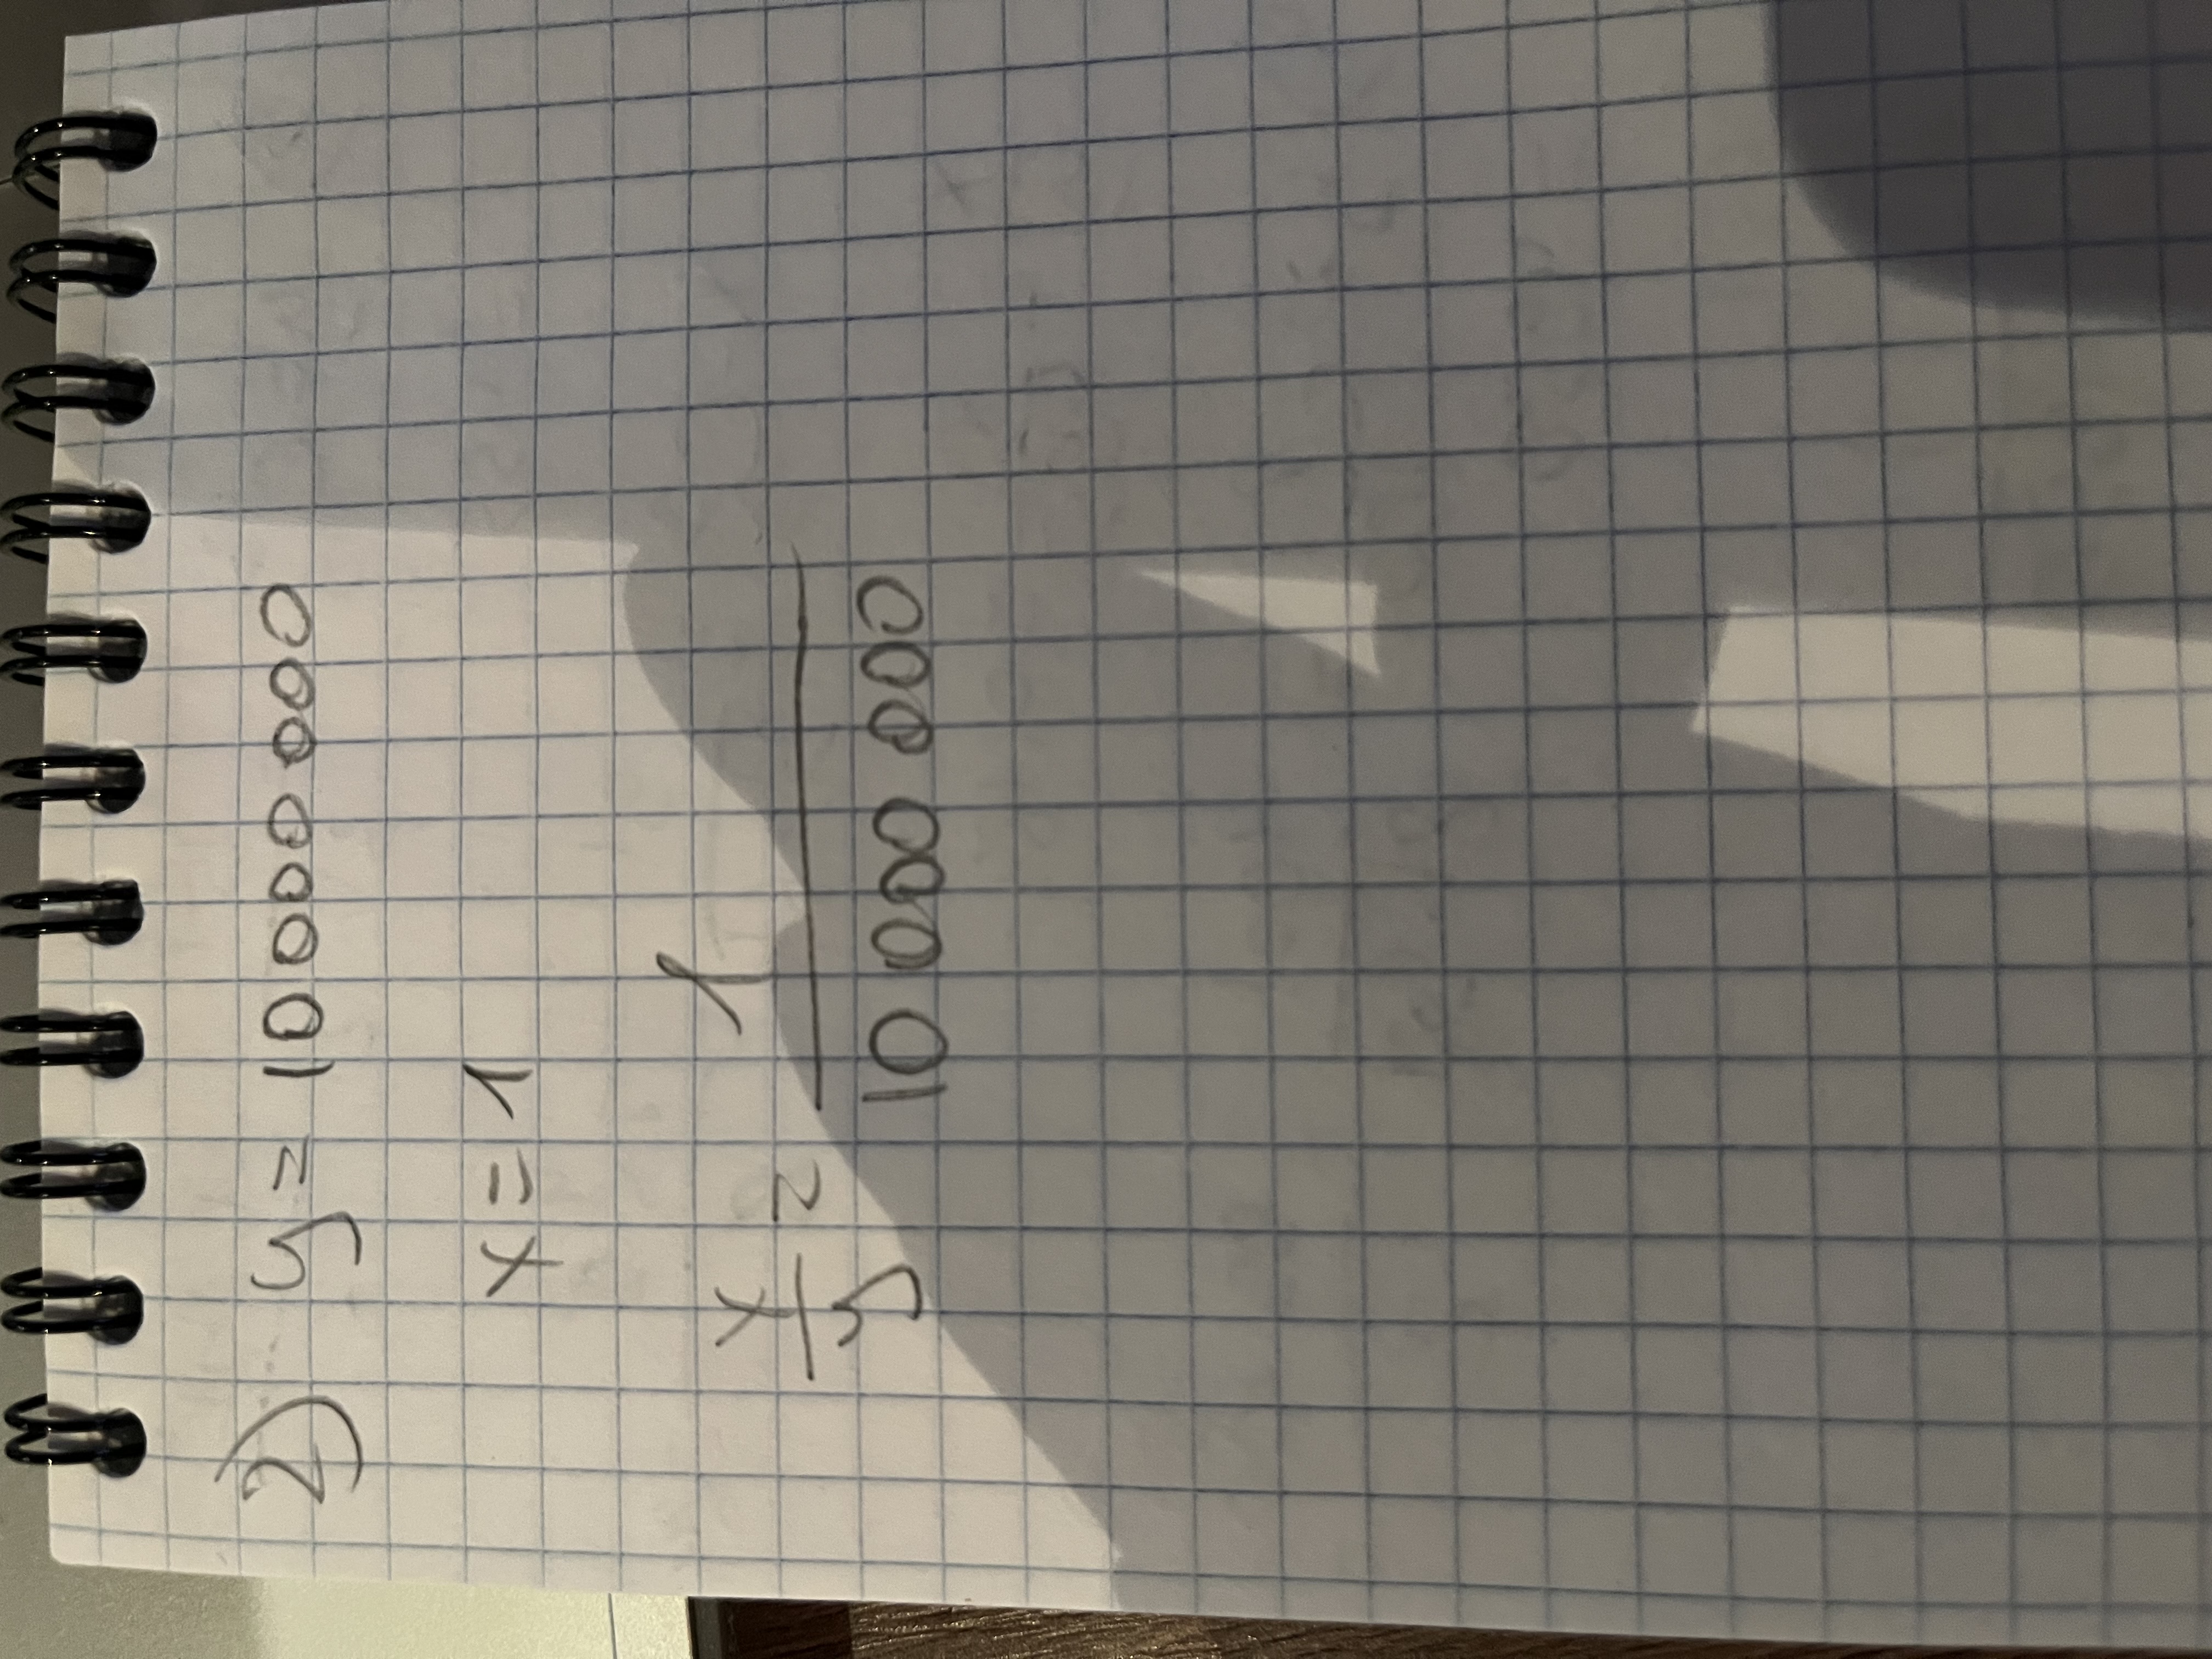 2) y = 10 000 000
x = 1
x/y = 1/10 000 000